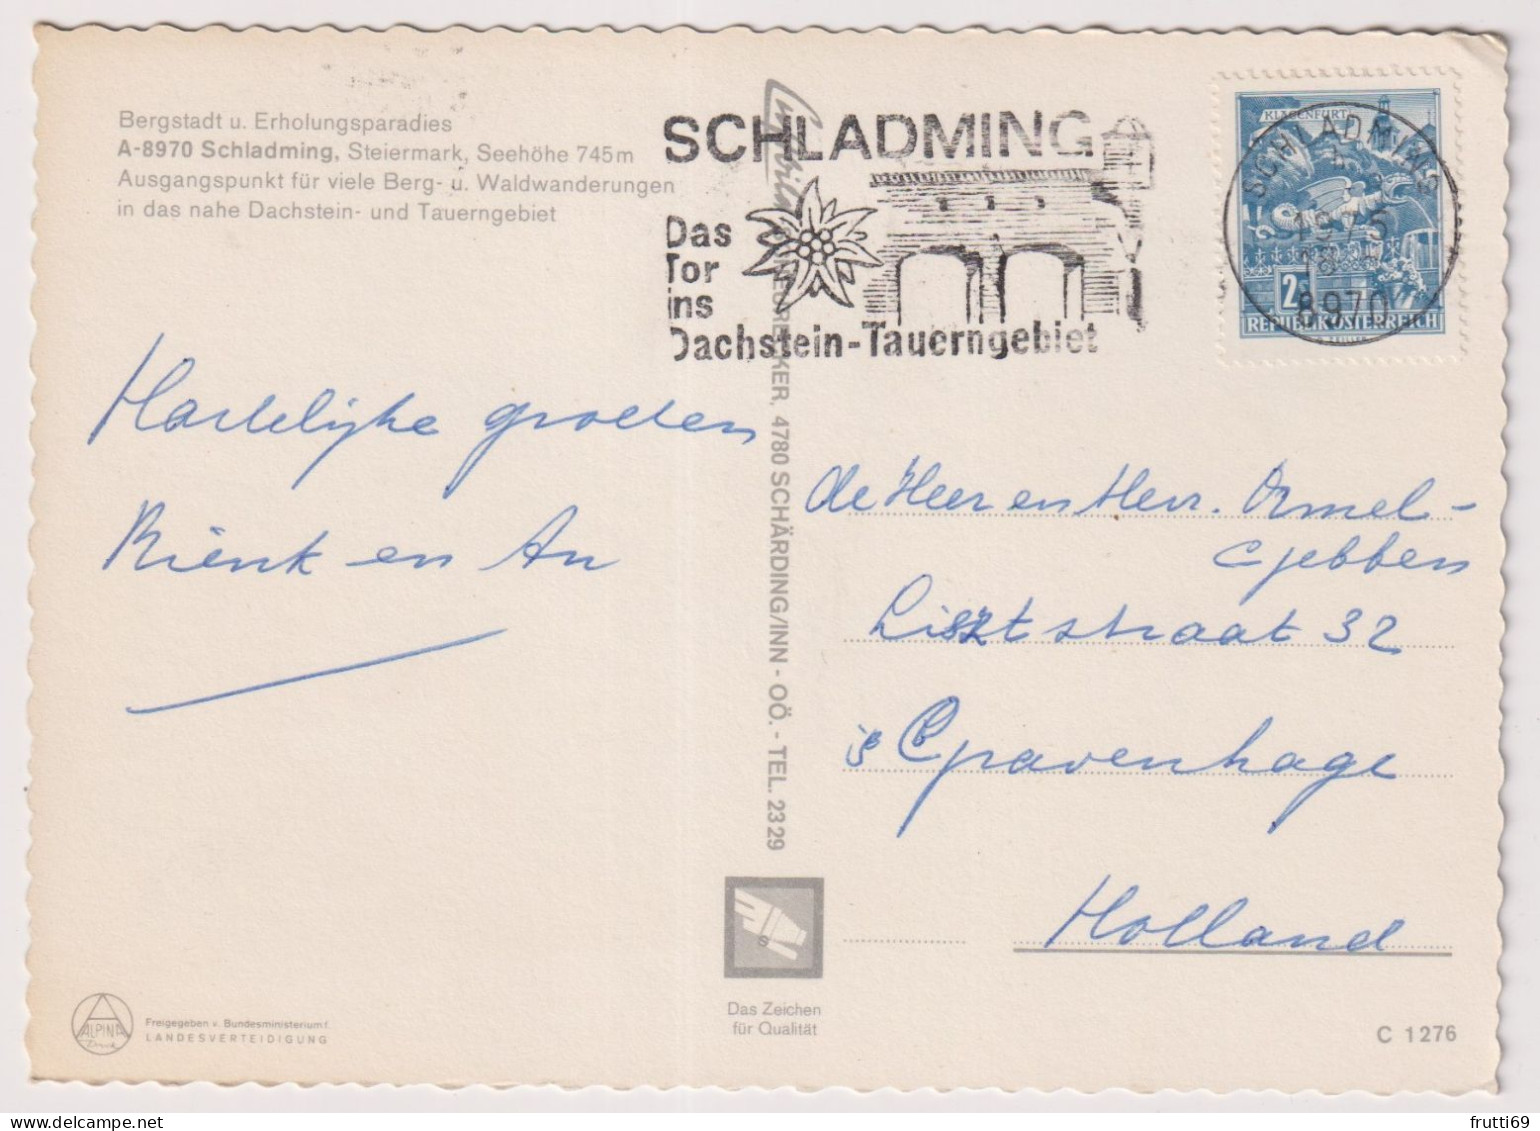 Bergstadt u. Erholungsparadies
A-8970 Schladming, Steiermark, Seehöhe 745 m
Ausgangspunkt für viele Berg- u. Waldwanderungen
in das nahe Dachstein- und Tauerngebiet
SCHLADMING
Das
Tor
ins
Dachstein-Tauerngebiet
KLAGENFURT
SCHLADMING
1975
8970
2
REPUBLIK ÖSTERREICH
Hartelijke groeten
Rienk en An
4780 SCHÄRDING/INN - OÖ. - TEL. 23 29
de Heer en Mevr. Ormel-
Gebben
Lisztstraat 32
's Gravenhage
Holland
Das Zeichen
für Qualität
ALPINA
Druck
Freigegeben v. Bundesministerium f.
LANDESVERTEIDIGUNG
C 1276
frutti69